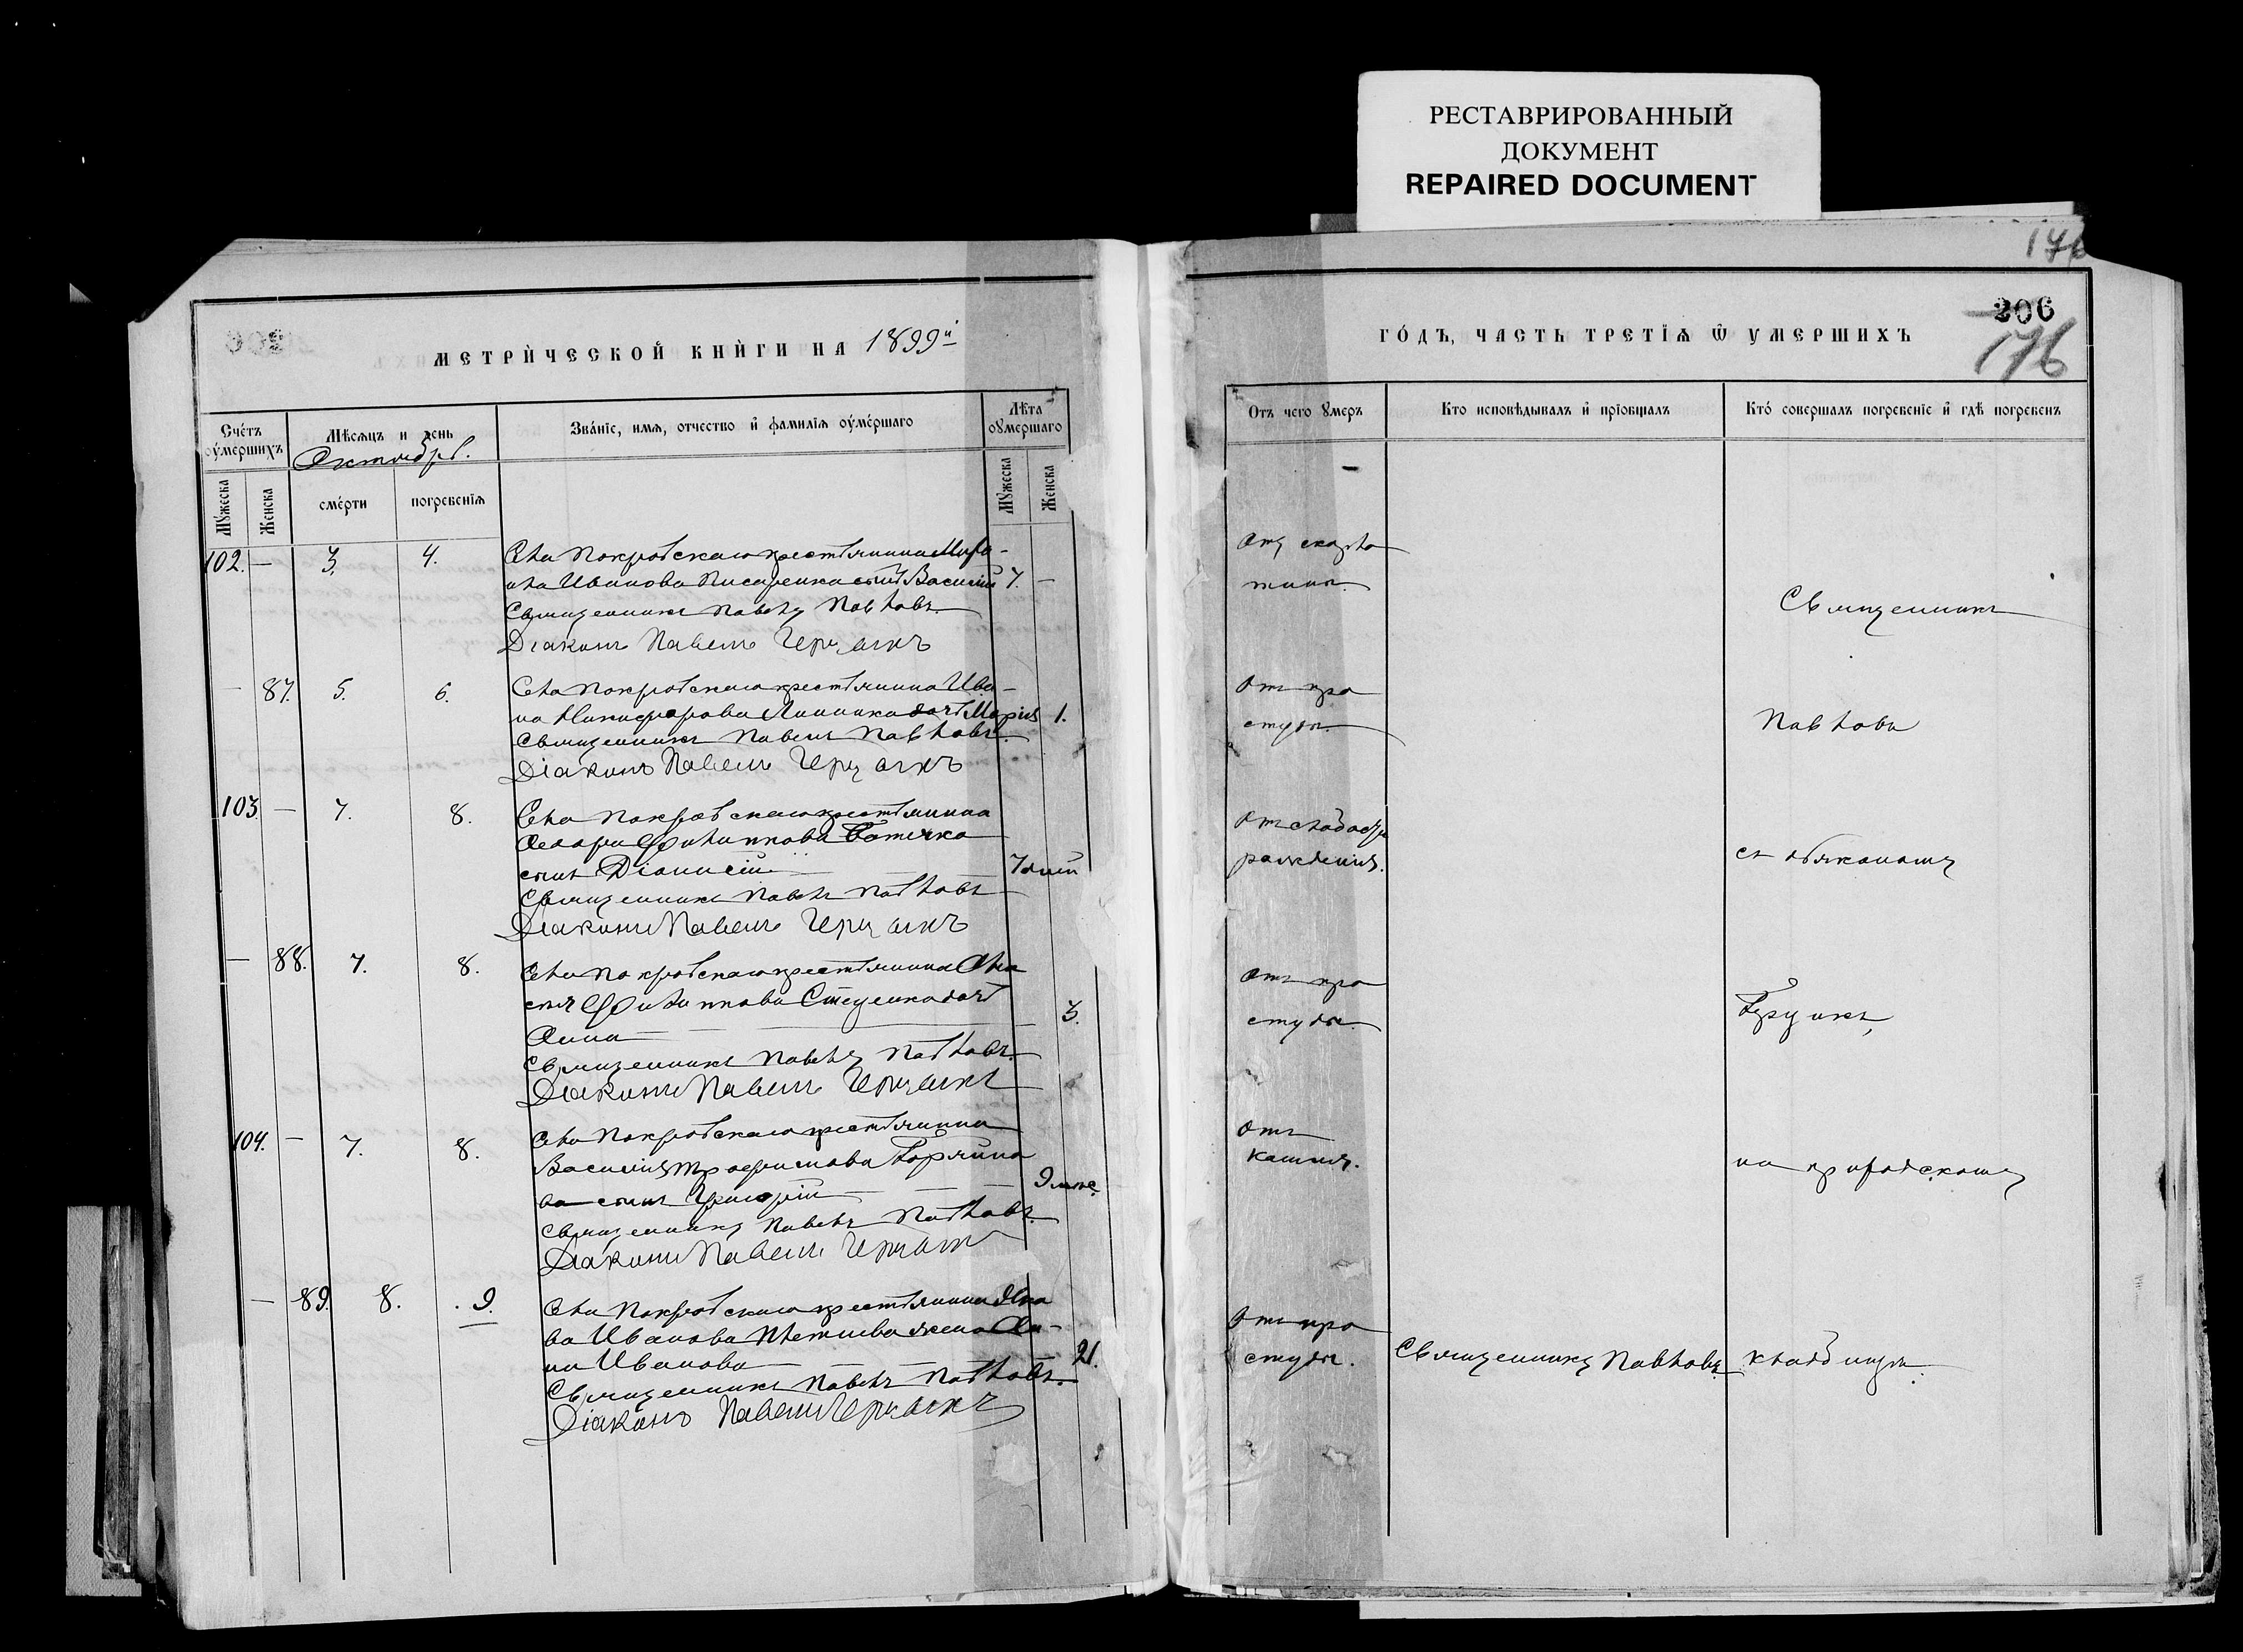 РЕСТАВРИРОВАННЫЙ
ДОКУМЕНТ
REPAIRED DOCUMENT
176
206
176
МЕТРИЧЕСКОЙ КНИГИ НА 1899й
ГОДЪ, ЧАСТЬ ТРЕТІѦ Ѿ УМЕРШИХЪ
Счетъ оумершихъ
Мѣсяцъ и день
Октябрь.
Званіе, имя, отчество и фамилія оумершаго
Лѣта оумершаго
Мужеска
Женска
смерти
погребенія
Мужеска
Женска
Отъ чего умеръ
Кто исповѣдывалъ и пріобщалъ
Кто совершалъ погребеніе и гдѣ погребенъ
102. — 3. 4. Села Покровскаго крестьянина
Иванова Писаренка сынъ Василій 7. —
Священникъ Павелъ Павловъ.
Діаконъ Павелъ
Отъ скарла
тины.
— 87. 5. 6. Села Покровскаго крестьянина Ива-
на Никифорова Линника дочь Марія 1.
Священникъ Павелъ Павловъ.
Діаконъ Павелъ
Отъ про
студы.
103. — 7. 8. Села Покровскаго крестьянина
Филиппова
сынъ Діонисій 7 дней
Священникъ Павелъ Павловъ
Діаконъ Павелъ
Отъ слабости
рожденія.
— 88. 7. 8. Села Покровскаго крестьянина
Филиппова дочь
Анна 3.
Священникъ Павелъ Павловъ.
Діаконъ Павелъ
Отъ про
студы.
104. — 7. 8. Села Покровскаго крестьянина
Василія Трофимова
ва сынъ Григорій 9 мѣс.
Священникъ Павелъ Павловъ.
Діаконъ Павелъ
Отъ
кашля.
— 89. 8. 9. Села Покровскаго крестьянина Яко
ва Иванова жена Ан-
на Иванова 21.
Священникъ Павелъ Павловъ.
Діаконъ Павелъ
Отъ про
студы.
Священникъ Павловъ
Священникъ
Павловъ
съ діакономъ
на приходскомъ
кладбищѣ.